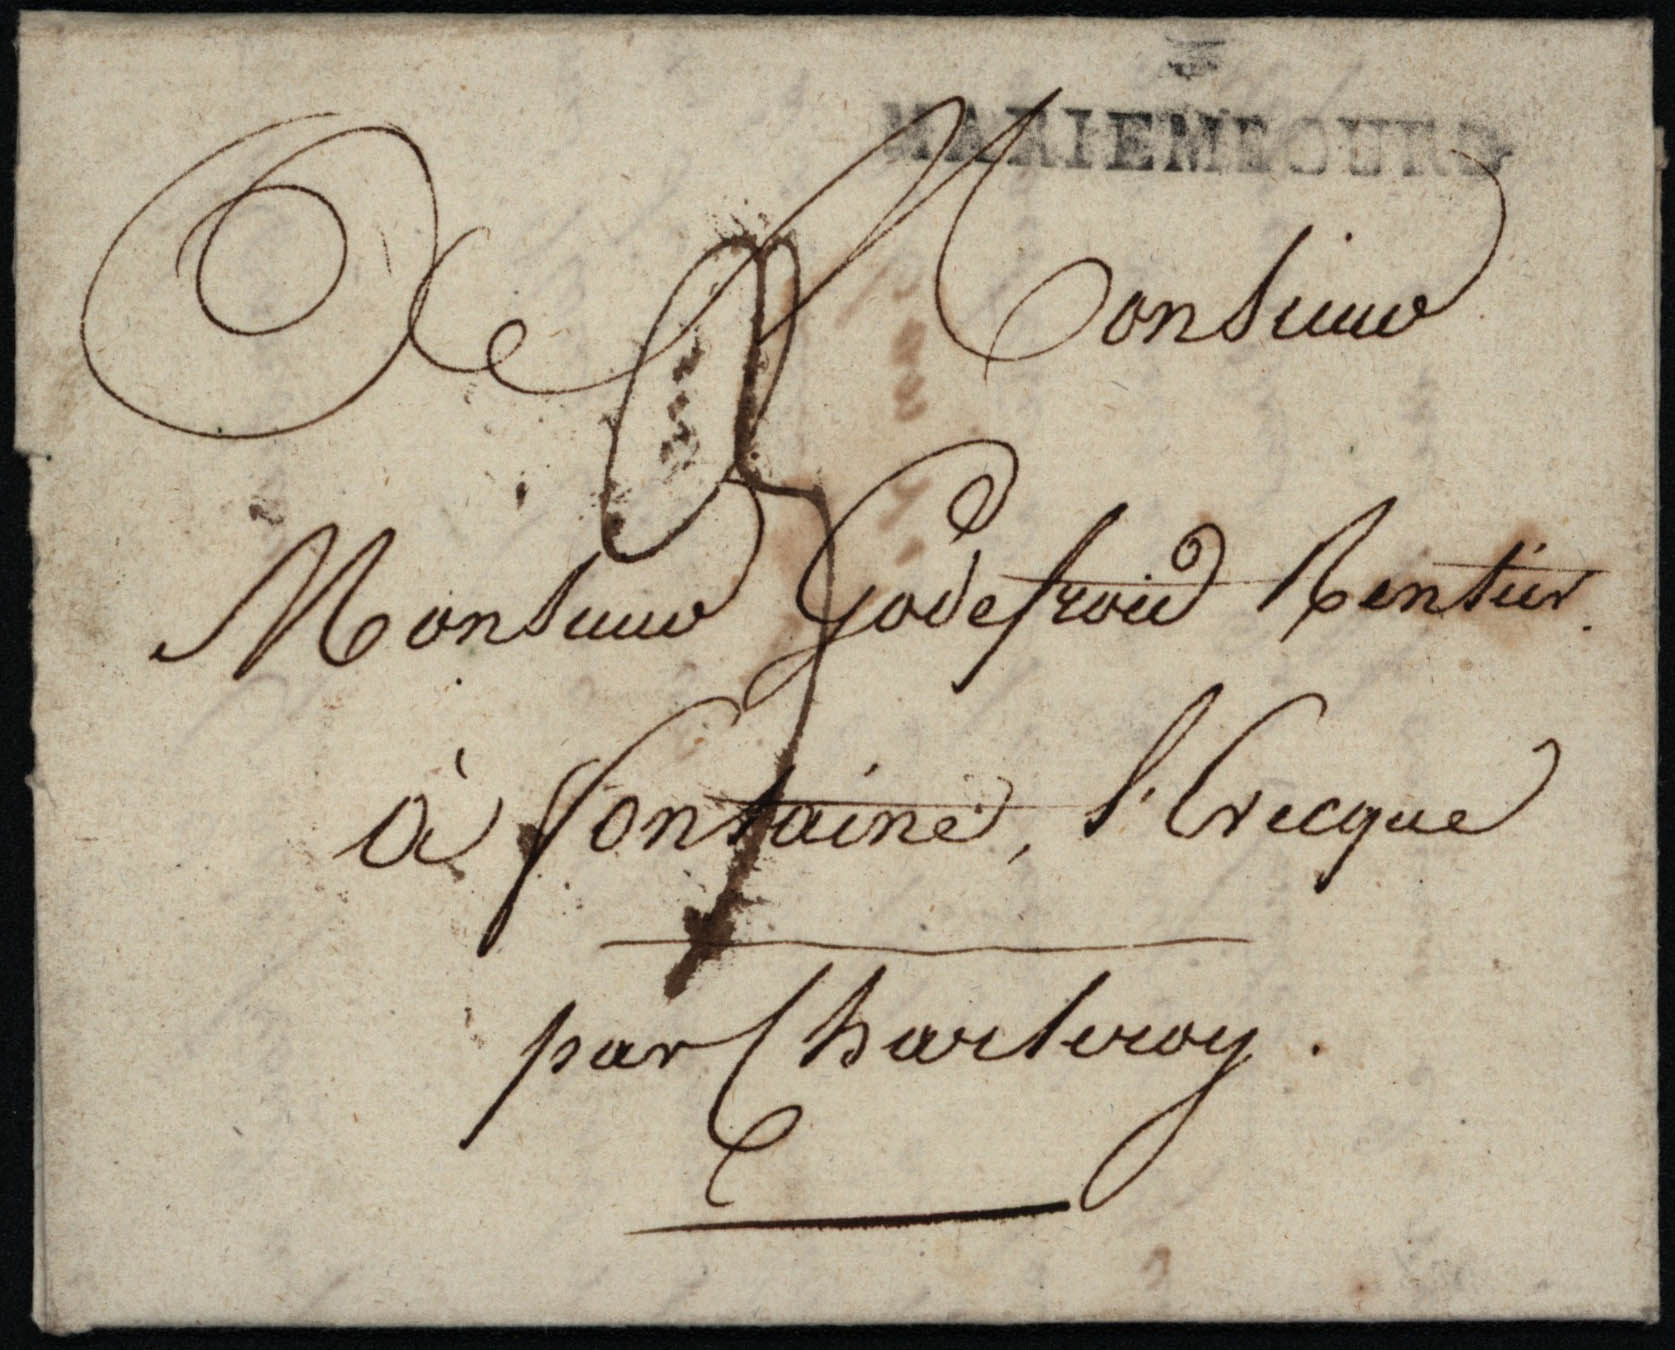 MARIEMBOURG
A Monsieur
Monsieur Godefroid Rentier.
à fontaine, l'Evecque
par Charleroy.